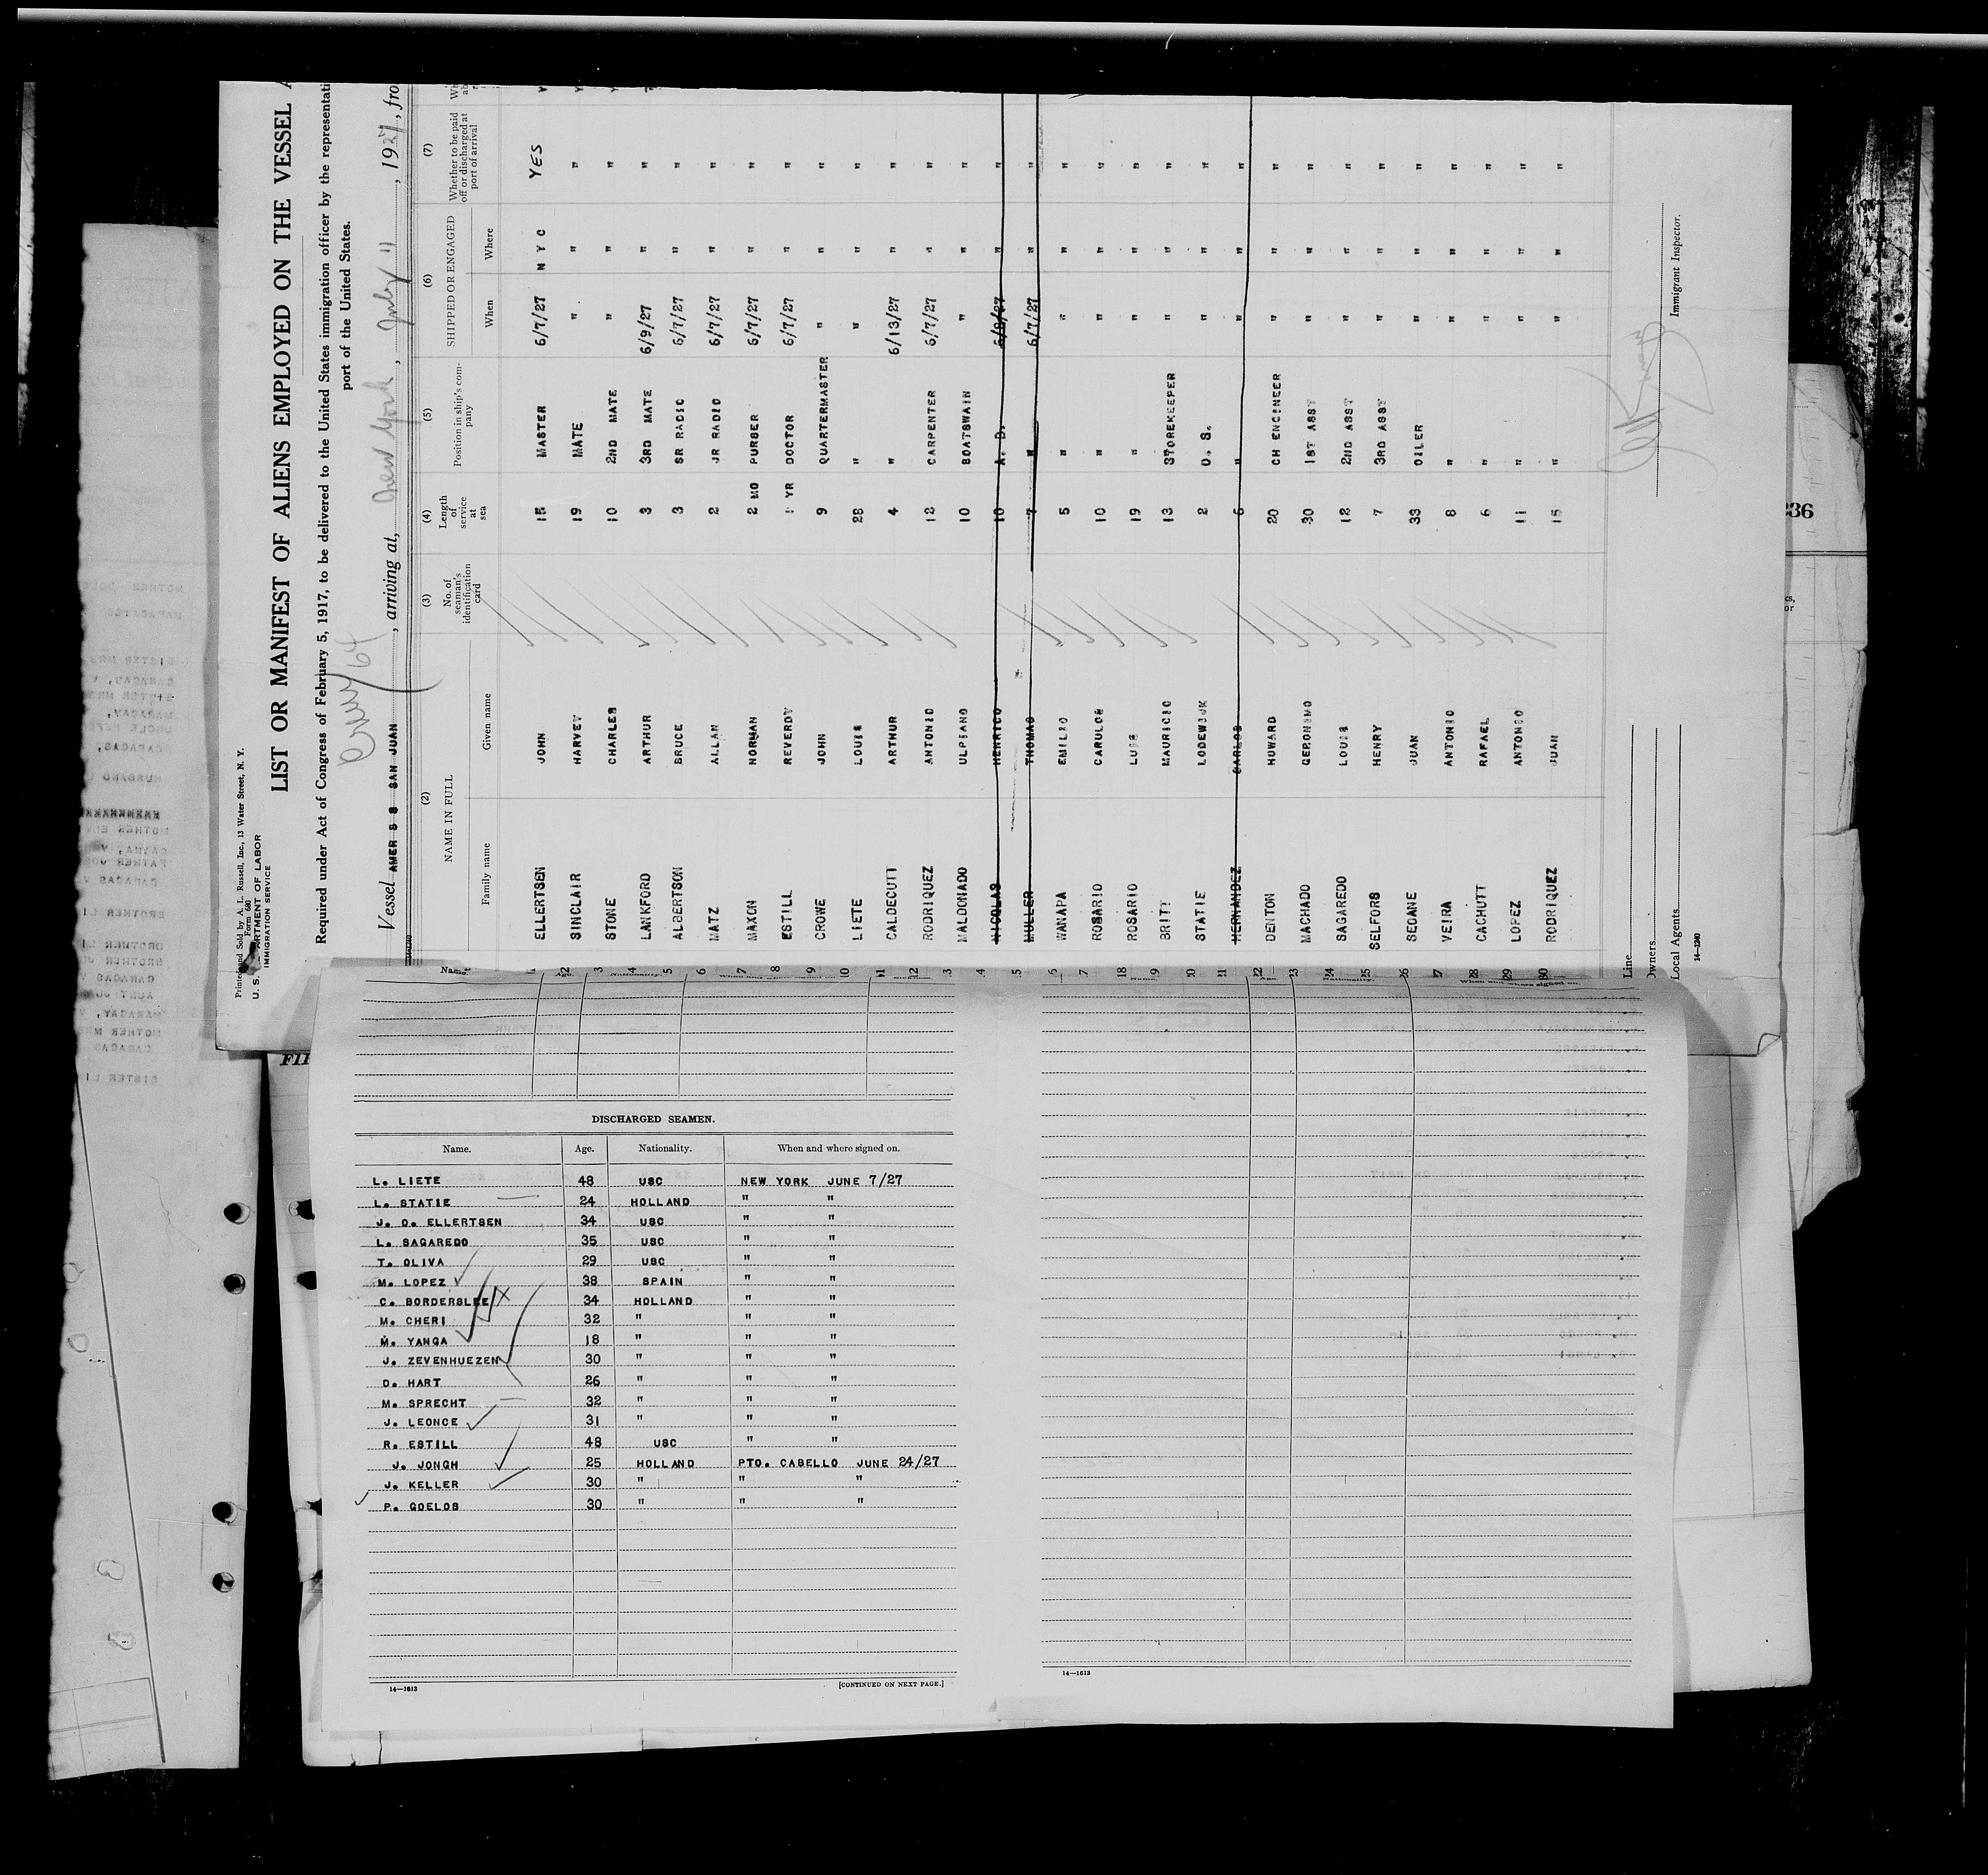 Printed and Sold by A. L. Russell, Inc., 13 Water Street, N. Y.
Form 680
U. S. DEPARTMENT OF LABOR
IMMIGRATION SERVICE
LIST OR MANIFEST OF ALIENS EMPLOYED ON THE VESSEL
Required under Act of Congress of February 5, 1917, to be delivered to the United States immigration officer by the representati
port of the United States.
Crew 64
Vessel AMER S S SAN JUAN, arriving at, New York, July 11, 1927, fro
(2) (3) (4) (5) (6) (7)
NAME IN FULL No. of seaman's identification card Length of service at sea Position in ship's company SHIPPED OR ENGAGED Whether to be paid off or discharged at port of arrival
Family name Given name When Where
1 ELLERTSEN JOHN 15 MASTER 6/7/27 N Y C YES
2 SINCLAIR HARVEY 19 MATE " " "
3 STONE CHARLES 10 2ND MATE " " "
4 LANKFORD ARTHUR 3 3RD MATE 6/9/27 " "
5 ALBERTSON BRUCE 3 SR RADIO 6/7/27 " "
6 MATZ ALLAN 2 JR RADIO 6/7/27 " "
7 MAXON NORMAN 2 MO PURSER 6/7/27 " "
8 ESTILL REVERDY 1 YR DOCTOR 6/7/27 " "
9 CROWE JOHN 9 QUARTERMASTER " " "
10 LIETE LOUIS 28 " " " "
11 CALDECUTT ARTHUR 4 " 6/13/27 " "
12 RODRIQUEZ ANTONIO 12 CARPENTER 6/7/27 " "
3 MALDONADO ULPIANO 10 BOATSWAIN " " "
4 NICOLAS HENRICO 10 A. B. 6/8/27 " "
5 MULLER THOMAS 7 " 6/7/27 " "
6 WANAPA EMILIO 5 " " " "
7 ROSARIO CARULOS 10 " " " "
18 ROSARIO LUIS 19 " " " "
9 BRITT MAURICIO 13 STOREKEEPER " " "
10 STATIE LODEWIJK 2 O. S. " " "
11 HERNANDEZ CARLOS 6 " " " "
22 DENTON HOWARD 20 CH ENGINEER " " "
23 MACHADO GERONIMO 30 1ST ASST " " "
24 SAGAREDO LOUIS 12 2ND ASST " " "
25 SELFORS HENRY 7 3RD ASST " " "
26 SEOANE JUAN 33 OILER " " "
27 VEIRA ANTONIO 8 " " " "
28 CACHUTT RAFAEL 6 " " " "
29 LOPEZ ANTONIO 11 " " " "
30 RODRIQUEZ JUAN 15 " " " "
Line
Owners
Local Agents
Immigrant Inspector.
14—1240
DISCHARGED SEAMEN.
Name. Age. Nationality. When and where signed on.
L. LIETE 48 USC NEW YORK JUNE 7/27
L. STATIE 24 HOLLAND " "
J. O. ELLERTSEN 34 USC " "
L. SAGAREDO 35 USC " "
T. OLIVA 29 USC " "
M. LOPEZ 38 SPAIN " "
C. BORDERSLEE 34 HOLLAND " "
M. CHERI 32 " " "
M. YANGA 18 " " "
J. ZEVENHUEZEN 30 " " "
D. HART 26 " " "
M. SPRECHT 32 " " "
J. LEONCE 31 " " "
R. ESTILL 48 USC " "
J. JONGH 25 HOLLAND PTO. CABELLO JUNE 24/27
J. KELLER 30 " " "
P. GOELOS 30 " " "
14—1613
[CONTINUED ON NEXT PAGE.]
14—1613